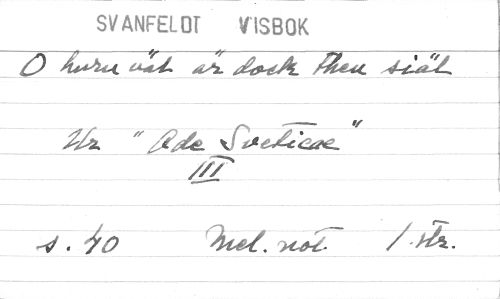 SVANFELDT VISBOK
O huru väl är dock then siäl
Ur "Ode Sveticae"
III
s. 40 Mel. not. 1 str.